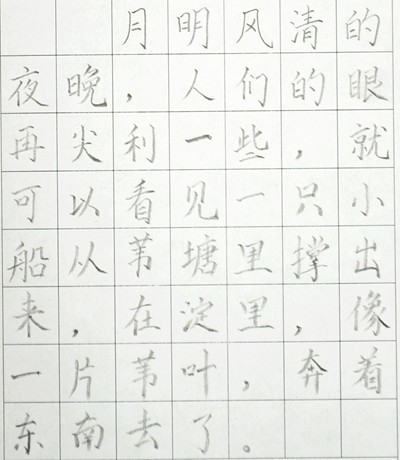 月明风清的
夜晚，人们的眼
再尖利一些，就
可以看见一只小
船从苇塘里撑出
来，在淀里，像
一片苇叶，奔着
东南去了。